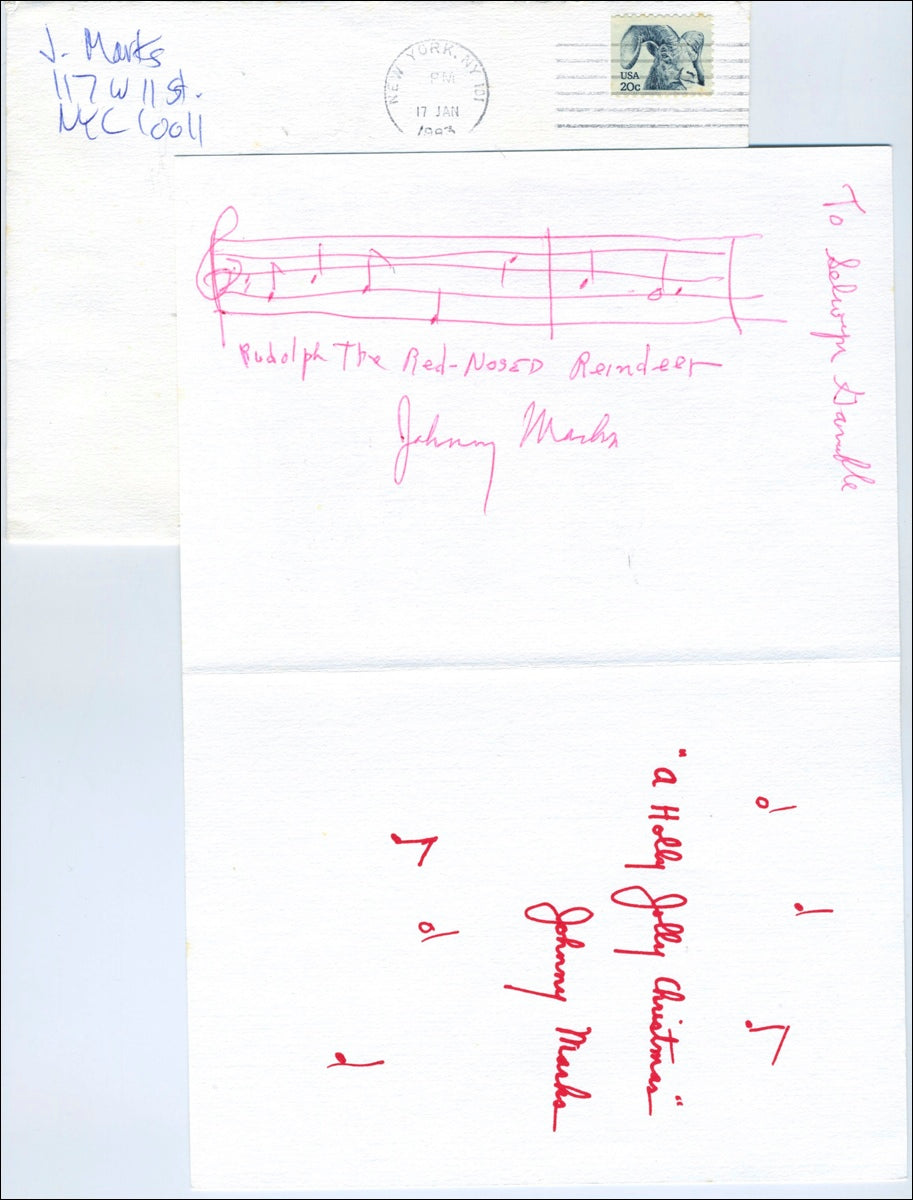 J. Marks
117 W 11 St.
NYC 10011
NEW YORK, NY 101
PM
17 JAN
1983
USA
20c
To Selwyn Gamble
Rudolph The Red-Nosed Reindeer
Johnny Marks
"a Holly Jolly Christmas"
Johnny Marks